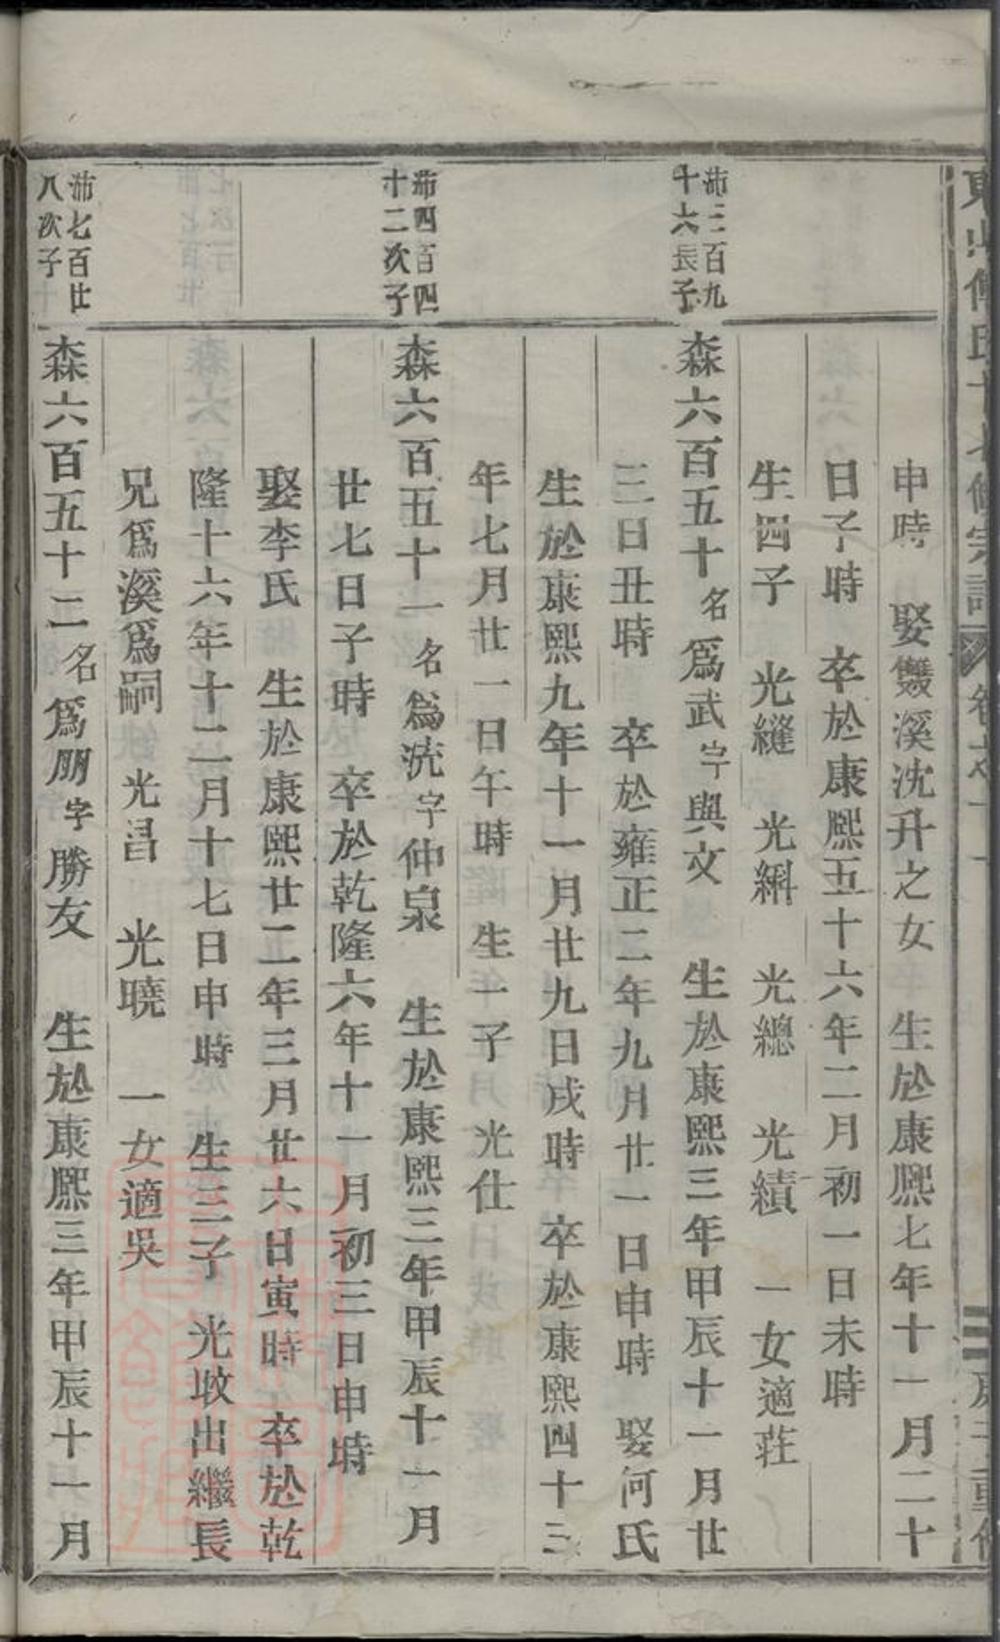 申時　娶雙溪沈升之女　生於康熙七年十一月二十
日子時　卒於康熙五十六年二月初一日未時
生四子　光縫　光緉　光總　光績　一女適莊
沛三百九
十六長子
森六百五十名爲武字與文　生於康熙三年甲辰十一月廿
三日丑時　卒於雍正二年九月廿一日申時　娶何氏
生於康熙九年十一月廿九日戌時　卒於康熙四十三
年七月廿一日午時　生一子　光仕
沛四百四
十二次子
森六百五十一名爲洸字仲泉　生於康熙三年甲辰十一月
廿七日子時　卒於乾隆六年十一月初三日申時
娶李氏　生於康熙廿二年三月廿六日寅時　卒於乾
隆十六年十二月十七日申時　生三子　光放出繼長
兄爲溪爲嗣　光昌　光曉　一女適吳
沛七百廿
八次子
森六百五十二名爲朋字勝友　生於康熙三年甲辰十一月